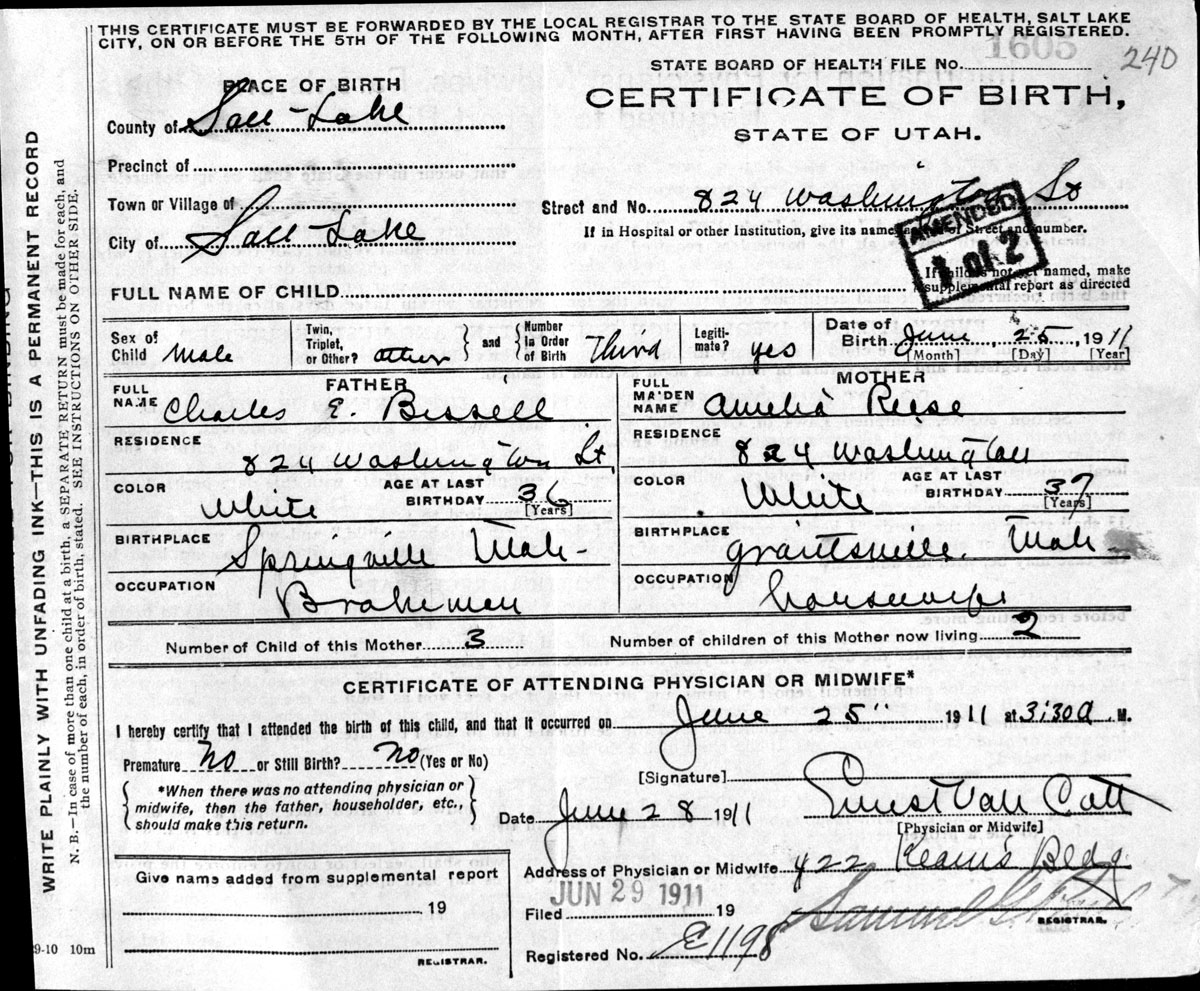 THIS CERTIFICATE MUST BE FORWARDED BY THE LOCAL REGISTRAR TO THE STATE BOARD OF HEALTH, SALT LAKE
CITY, ON OR BEFORE THE 5TH OF THE FOLLOWING MONTH, AFTER FIRST HAVING BEEN PROMPTLY REGISTERED.
1605
240
STATE BOARD OF HEALTH FILE NO.
PLACE OF BIRTH
CERTIFICATE OF BIRTH,
STATE OF UTAH.
County of Salt Lake
Precinct of
Town or Village of
Street and No. 824 Washington St
City of Salt Lake
If in Hospital or other Institution, give its name of Street and number.
AMENDED
1 of 2
FULL NAME OF CHILD
If child is not yet named, make
supplemental report as directed
Sex of Child Male
Twin, Triplet, or Other? and Number in Order of Birth Third
Legiti-mate? yes
Date of Birth June 25, 1911
[Month] [Day] [Year]
FATHER
FULL NAME Charles E. Bissell
RESIDENCE 824 Washington St,
COLOR White AGE AT LAST BIRTHDAY 36 [Years]
BIRTHPLACE Springville Utah
OCCUPATION Brakeman
MOTHER
FULL MAIDEN NAME Amelia Reese
RESIDENCE 824 Washington
COLOR White AGE AT LAST BIRTHDAY 37 [Years]
BIRTHPLACE Grantsville. Utah
OCCUPATION housewife
Number of Child of this Mother 3 Number of children of this Mother now living 2
CERTIFICATE OF ATTENDING PHYSICIAN OR MIDWIFE*
I hereby certify that I attended the birth of this child, and that it occurred on June 25" 1911 at 3:30 a. M.
Premature No or Still Birth? No (Yes or No)
*When there was no attending physician or
midwife, then the father, householder, etc.,
should make this return.
[Signature] Ernest Van Cott
Date June 28 1911
[Physician or Midwife]
Address of Physician or Midwife 422 Kearns Bldg.
JUN 29 1911
Filed 19
Samuel
REGISTRAR.
Registered No. E1198
Give name added from supplemental report
, 19
REGISTRAR.
9-10 10m
WRITE PLAINLY WITH UNFADING INK—THIS IS A PERMANENT RECORD
N. B.—In case of more than one child at a birth, a SEPARATE RETURN must be made for each, and
the number of each, in order of birth, stated. SEE INSTRUCTIONS ON OTHER SIDE.